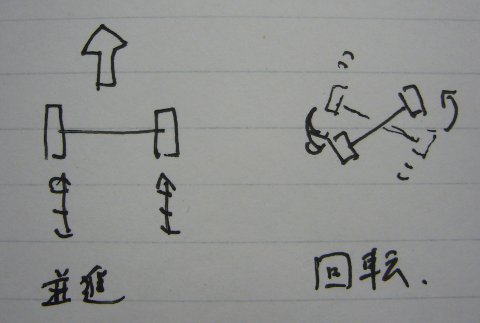 並進
回転.